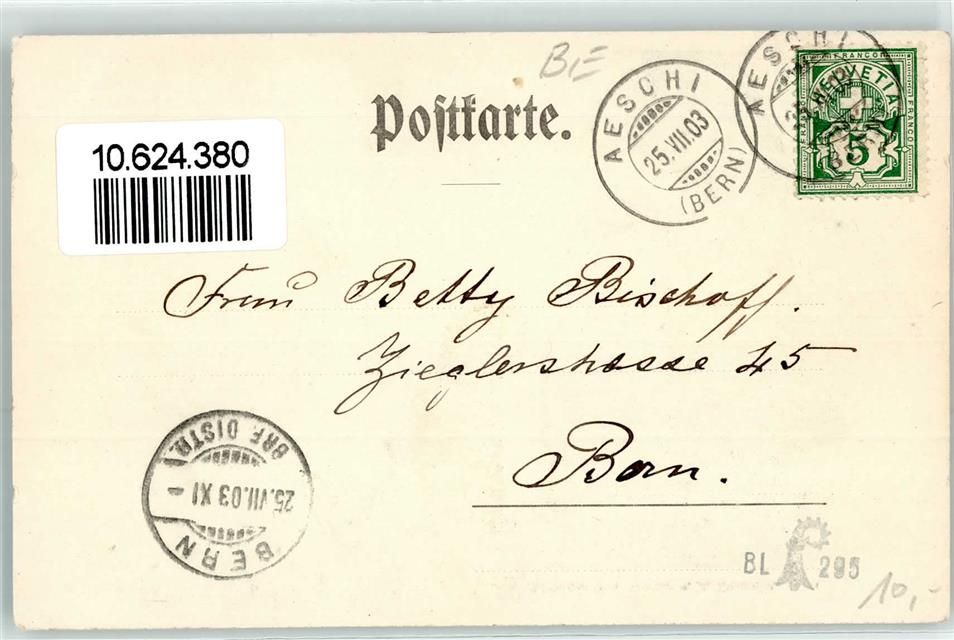 BE
10.624.380
Postkarte.
AESCHI
25.VII.03
(BERN)
AESCHI
FRANCO
HELVETIA
FRANCO
5
Frau Betty Bischoff.
Zieglerstrasse 45
Bern.
BRF. DISTR.
25.VII.03 XI
BERN
BL 295
10,-